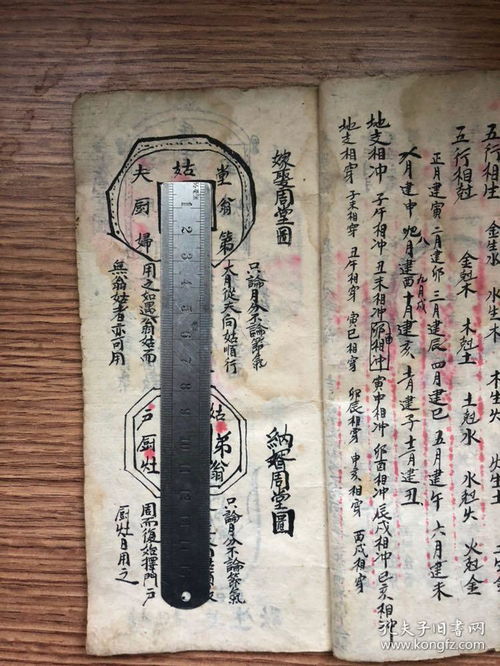 五行相生 金生水 水生木 木生火
五行相尅 金尅木 木尅土 土尅水 水尅火 火尅金
正月建寅 二月建卯 三月建辰 四月建巳 五月建午 六月建未
建申 八月建酉 九月戌 十月建亥 十一月建子 十二月建丑
地支相冲 子午相冲 丑未相冲 寅申相冲 卯酉相冲 辰戌相冲 巳亥相冲
地支相穿 子未相穿 丑午相穿 寅巳相穿 卯辰相穿 申亥相穿 酉戌相穿
嫁娶周堂圖
堂 姑 夫
翁 厨
第 婦
只論月分不論節氣
大月從夫向姑順行
用之如遇翁姑而
無翁姑者亦可用
納壻周堂圖
姑 戶
弟 厨
翁 灶
只論月分不論節氣
周而復始擇門戶
厨灶日用之
1 2 3 4 5 6 7 8 9 10 11 12 13
孔夫子旧书网
www.kongfz.com